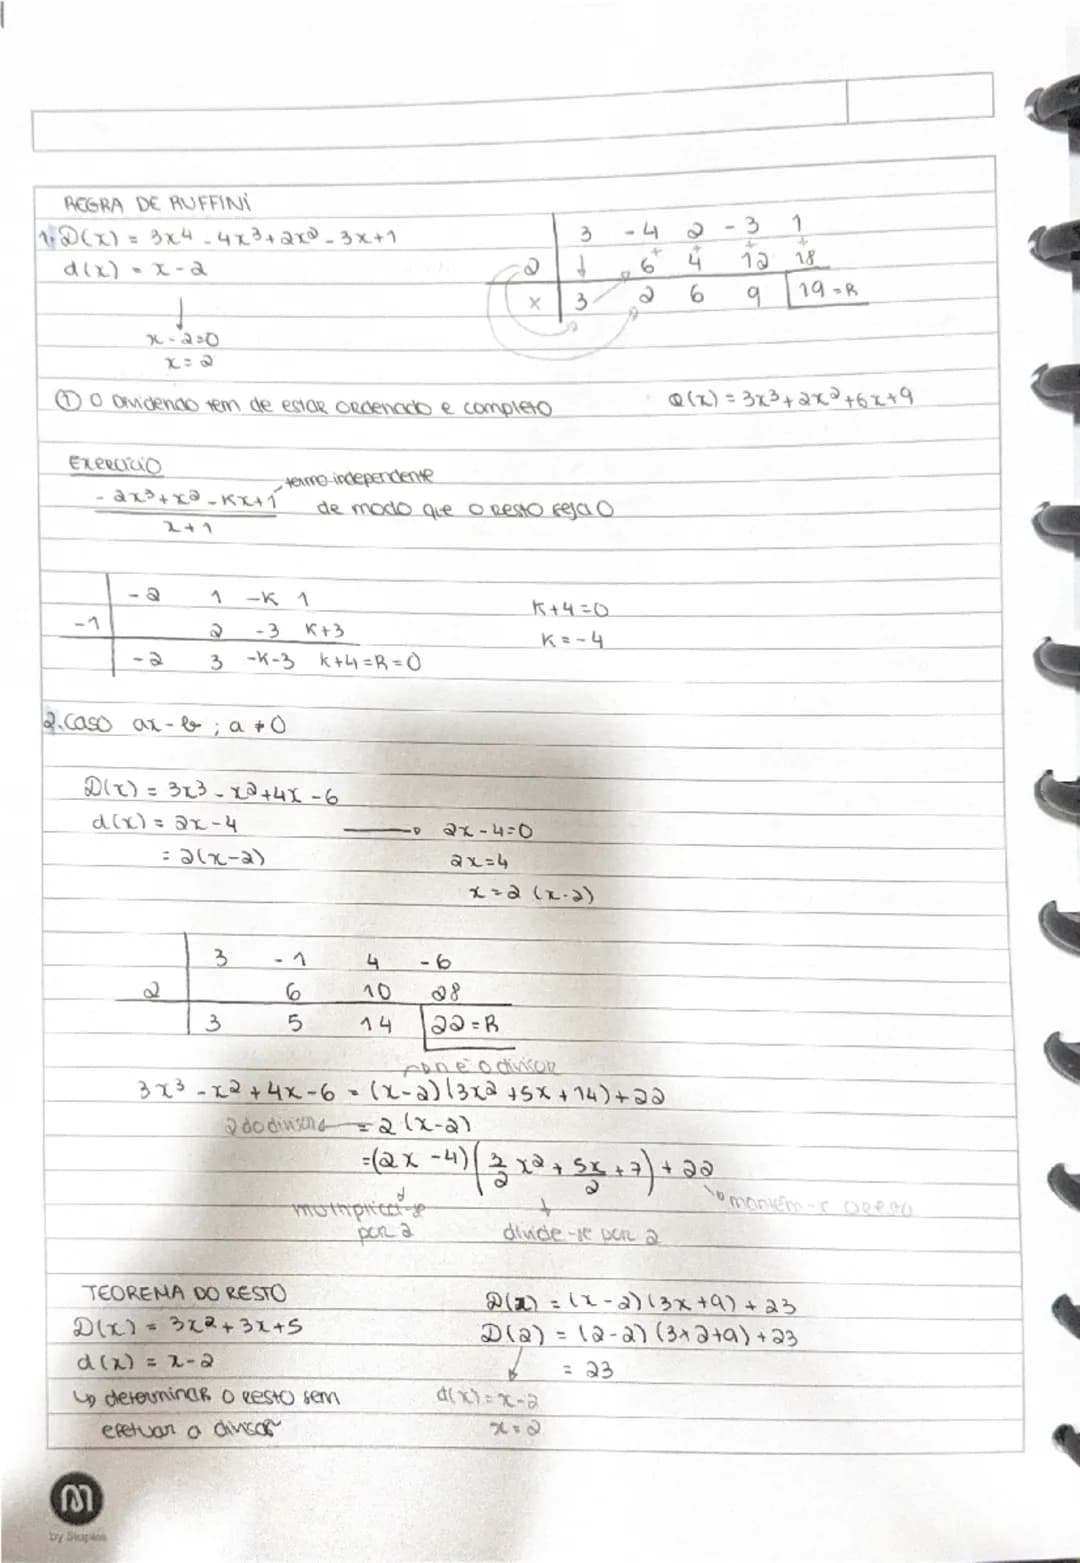 REGRA DE RUFFINI
1. D(x) = 3x⁴ - 4x³ + 2x² - 3x + 1
d(x) = x - 2
x - 2 = 0
x = 2
3 -4 2 -3 1
2 ↓ 6 4 12 18
x 3 2 6 9 19 = R
① O dividendo tem de estar ordenado e completo
Q(x) = 3x³ + 2x² + 6x + 9
Exercício
termo independente
- 2x³ + x² - Kx + 1
x + 1
de modo que o resto seja 0
-2 1 -K 1
-1 2 -3 K+3
-2 3 -K-3 K+4 = R = 0
K + 4 = 0
K = -4
2. Caso ax - b ; a ≠ 0
D(x) = 3x³ - x² + 4x - 6
d(x) = 2x - 4
= 2(x - 2)
2x - 4 = 0
2x = 4
x = 2 (x - 2)
3 -1 4 -6
2 6 10 28
3 5 14 22 = R
não é o divisor
3x³ - x² + 4x - 6 = (x - 2)(3x² + 5x + 14) + 22
2 do divisor = 2(x - 2)
= (2x - 4)(3/2 x² + 5x/2 + 7) + 22
multiplica-se
por 2
divide-se por 2
mantém-se
TEOREMA DO RESTO
D(x) = 3x² + 3x + 5
d(x) = x - 2
↳ determinar o resto sem
efetuar a divisão
D(x) = (x - 2)(3x + 9) + 23
D(2) = (2 - 2)(3 × 2 + 9) + 23
= 23
d(x) = x - 2
x = 2
by Staples